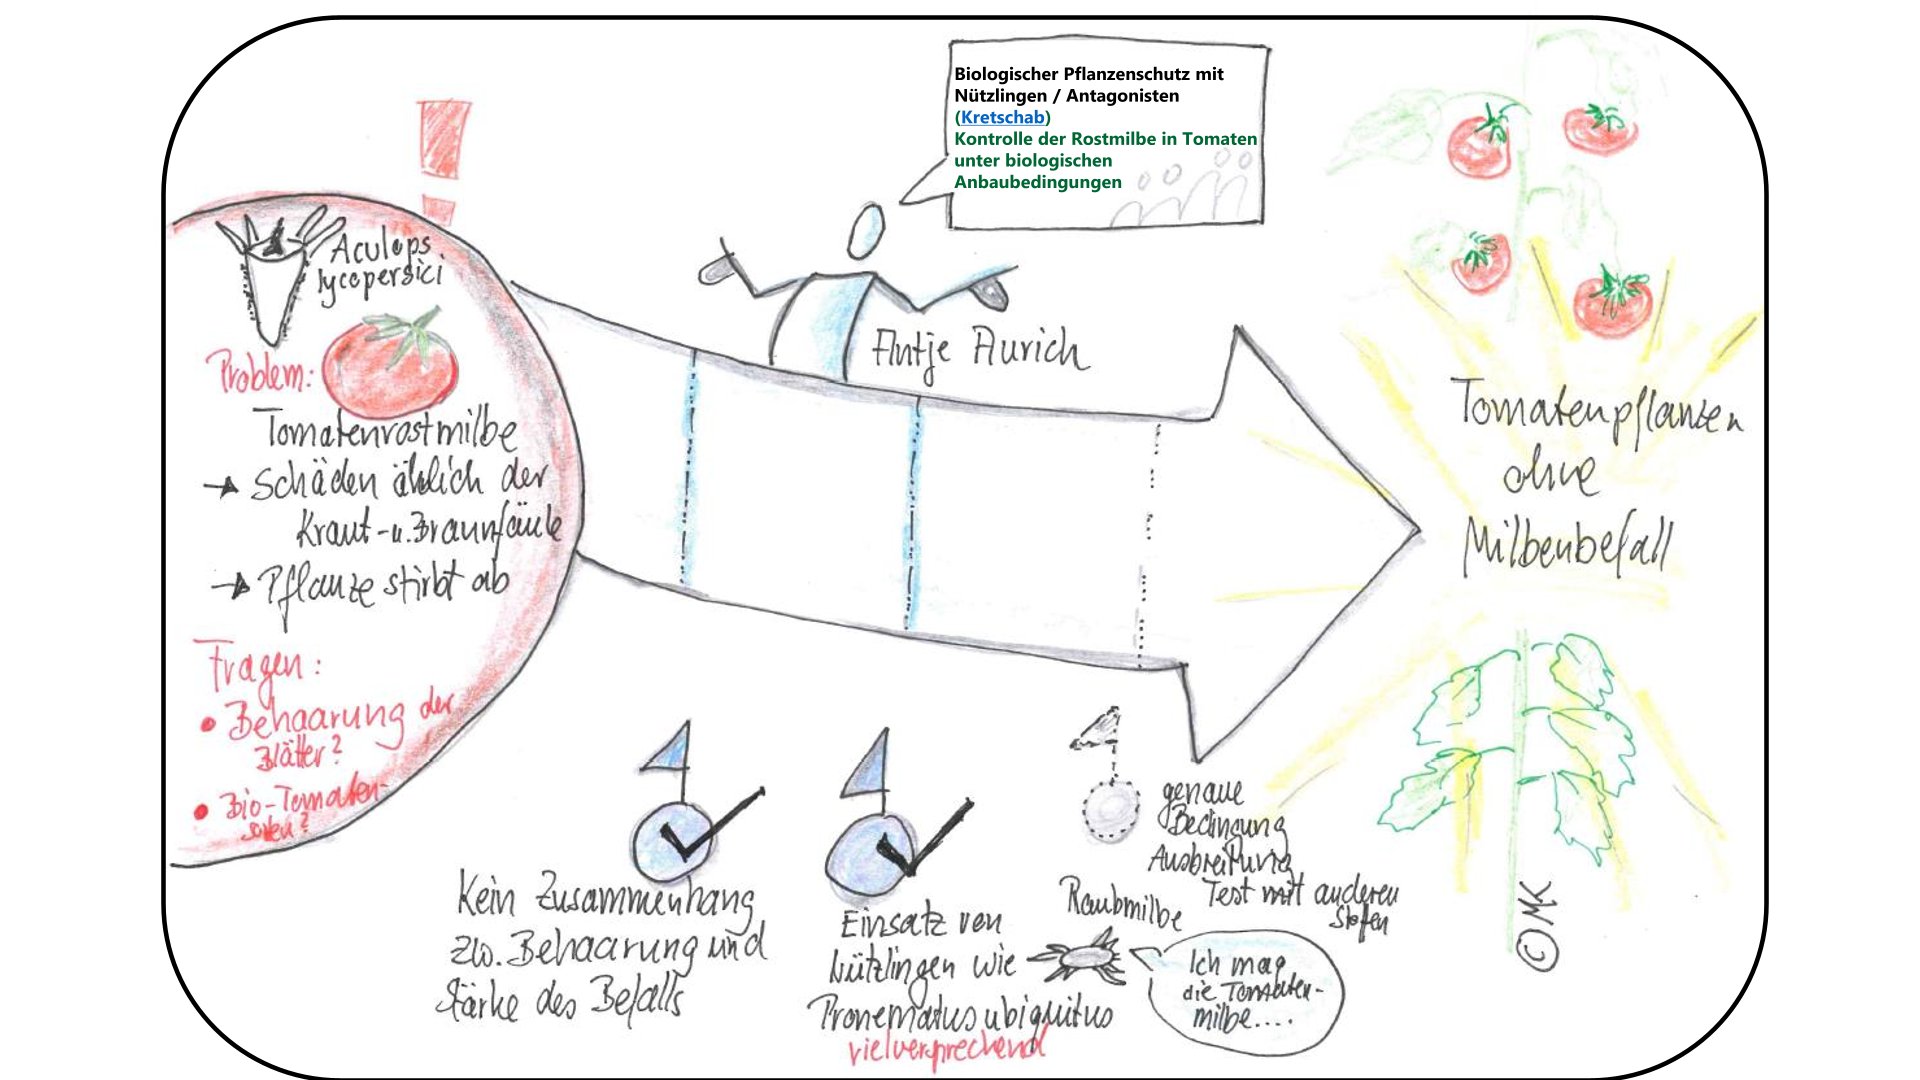 Biologischer Pflanzenschutz mit
Nützlingen / Antagonisten
(Kretschab)
Kontrolle der Rostmilbe in Tomaten
unter biologischen
Anbaubedingungen
Antje Aurich
Aculops
lycopersici
Problem:
Tomatenrostmilbe
→ Schäden ählich der
Kraut- u. Braunfäule
→ Pflanze stirbt ab
Fragen:
• Behaarung der
Blätter?
• Bio-Tomaten-
sorten?
Kein Zusammenhang
zw. Behaarung und
Stärke des Befalls
Einsatz von
Nützlingen wie
Pronematus ubiquitus
vielversprechend
genaue
Bedingung
Ausbreitung
Test mit anderen
Raubmilbe
Ich mag
die Tomaten-
milbe....
Tomatenpflanzen
ohne
Milbenbefall
© MK